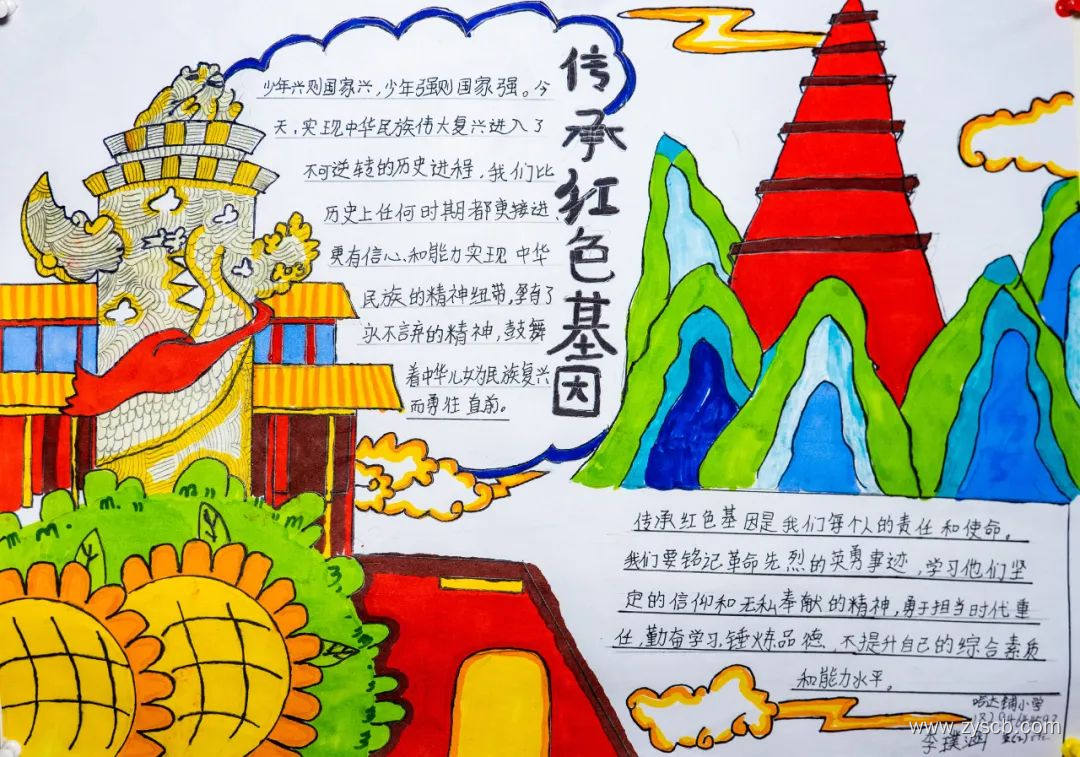 传承红色基因
少年兴则国家兴,少年强则国家强。今
天,实现中华民族伟大复兴进入了
不可逆转的历史进程,我们比
历史上任何时期都更接进、
更有信心、和能力实现中华
民族的精神纽带,坚有了
永不言弃的精神,鼓舞
着中华儿女为民族复兴
而勇往直前。
传承红色基因是我们每个人的责任和使命。
我们要铭记革命先烈的英勇事迹,学习他们坚
定的信仰和无私奉献的精神,勇于担当时代重
任,勤奋学习,锤炼品德,不提升自己的综合素质
和能力水平。
哈达铺小学
李璞涵
www.zyscb.com